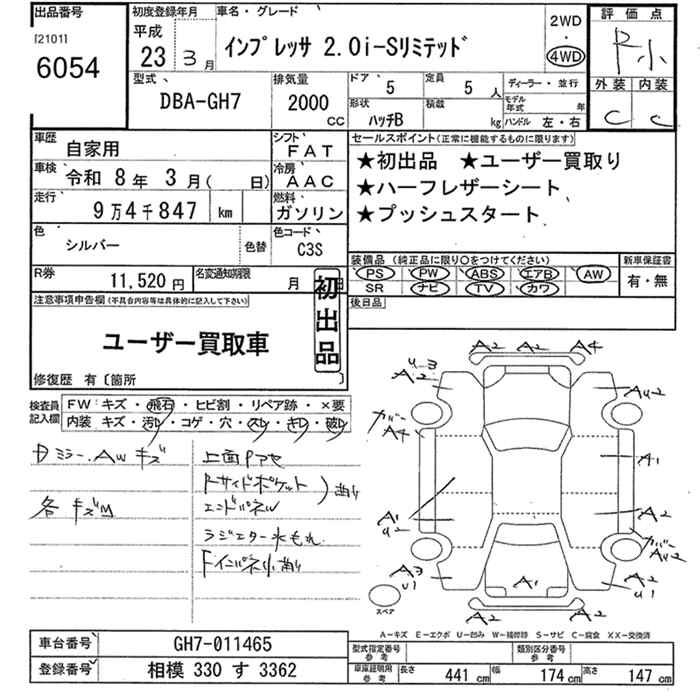 出品番号
[2101]
6054
初度登録年月
平成
23年 3月
車名・グレード
インプレッサ 2.0i-Sリミテッド
2WD
・
4WD
評価点
R小
外装 内装
C C
型式
DBA-GH7
排気量
2000
CC
ドア
5
定員
5
人
形状
ハッチB
積載
kg
ディーラー・並行
モデル年式
年
ハンドル 左・右
車歴
自家用
シフト
FAT
車検
令和 8年 3月( 日)
冷房
AAC
走行
9万4千847
km
燃料
ガソリン
色
シルバー
色替
色コード
C3S
R券
11,520円
名変通知期限
月 日
セールスポイント(正常に機能するものに限ります)
★初出品 ★ユーザー買取り
★ハーフレザーシート
★プッシュスタート
装備品 (純正品に限り○をつけてください)
PS PW ABS エアB AW
SR ナビ TV カワ
新車保証書
有・無
後日品
注意事項申告欄(不具合内容等は具体的に記入して下さい)
ユーザー買取車
初出品
修復歴 有〔箇所 〕
検査員記入欄
FW:キズ・飛石・ヒビ割・リペア跡・×要
内装 キズ・汚レ・コゲ・穴・スレ・キレ・破レ
Dミラー、AWキズ
各キズM
上面Pアセ
Rサイドポケット
エンドパネル
ラジエター水もれ
A2 A2 A4
u-3
A2
Au2
カバー
A4
A1
A1
u2
A2
カバー
Au2
A3
u1
A1
A2
u1
A2 A2
スペア
A-キズ E-エクボ U-凹み W-補修跡 S-サビ C-腐食 XX-交換済
車台番号
GH7-011465
登録番号
相模 330 す 3362
型式指定番号
参考
類別区分番号
参考
車庫証明用
参考
長さ
441 cm
幅
174 cm
高さ
147 cm